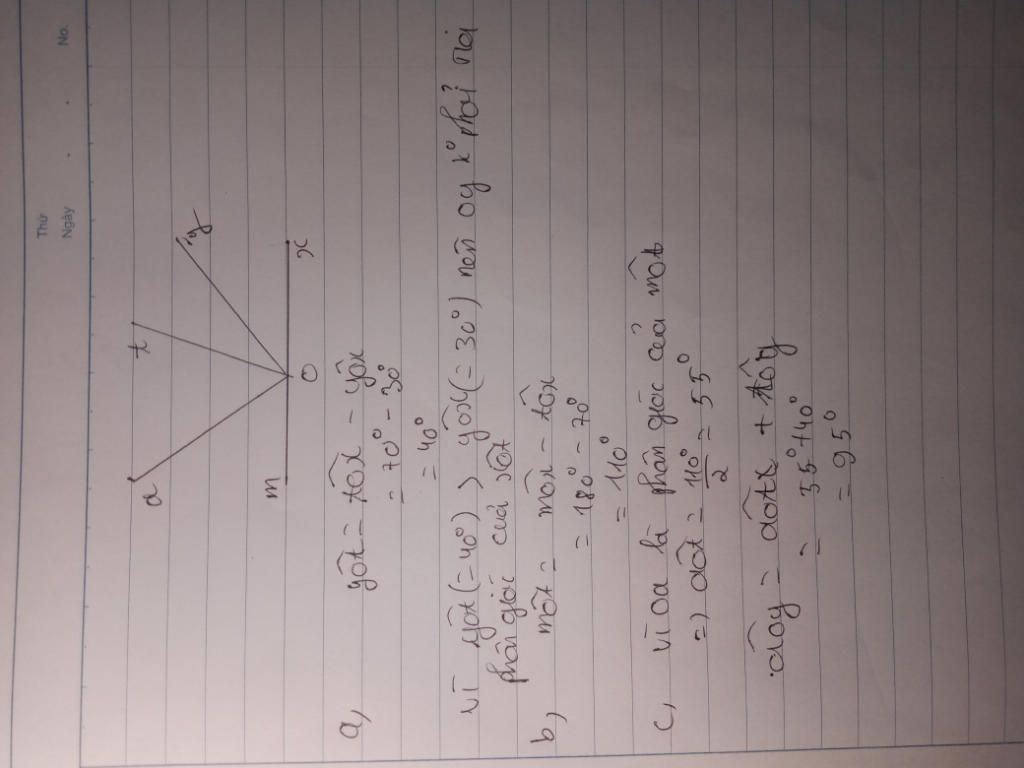 Thứ
Ngày
No.
a
t
y
m
O
x
a, yôt = tôx - yôx
= 70° - 30°
= 40°
Vì yôt (= 40°) > yôx (= 30°) nên oy k° phải là
phân giác của xôt
b, môt = môx - tôx
= 180° - 70°
= 110°
c, Vì oa là phân giác của môt
=) aôt = 110°/2 = 55°
aôy = aôt + tôy
= 55° + 40°
= 95°